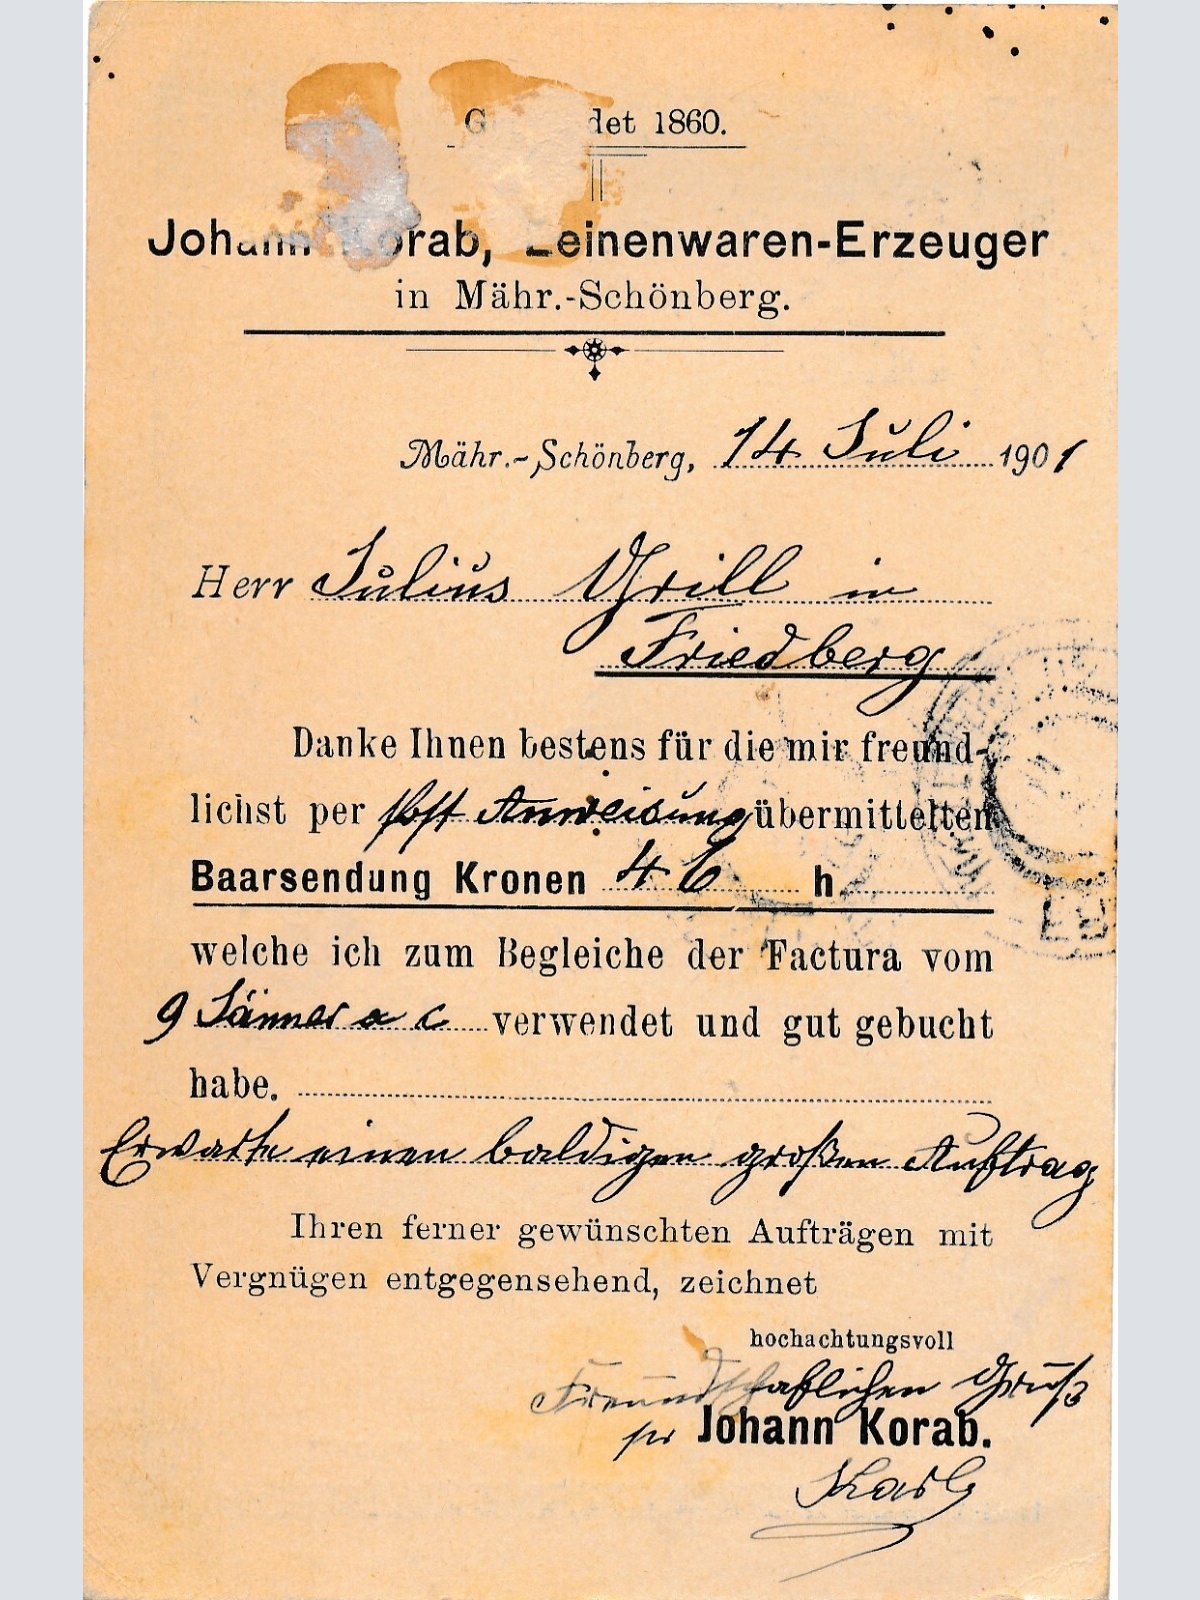 det 1860.
Johann Korab, Leinenwaren-Erzeuger
in Mähr.-Schönberg.
Mähr.-Schönberg, 14 Juli 1901
Herr Julius Grill in
Friedberg
Danke Ihnen bestens für die mir freund-
lichst per Post Anweisung übermittelten
Baarsendung Kronen 46 h
welche ich zum Begleiche der Factura vom
9 Jänner a c verwendet und gut gebucht
habe.
Erwarte einen baldigen großen Auftrag
Ihren ferner gewünschten Aufträgen mit
Vergnügen entgegensehend, zeichnet
hochachtungsvoll
Freundschaftlichen Gruß
per Johann Korab.